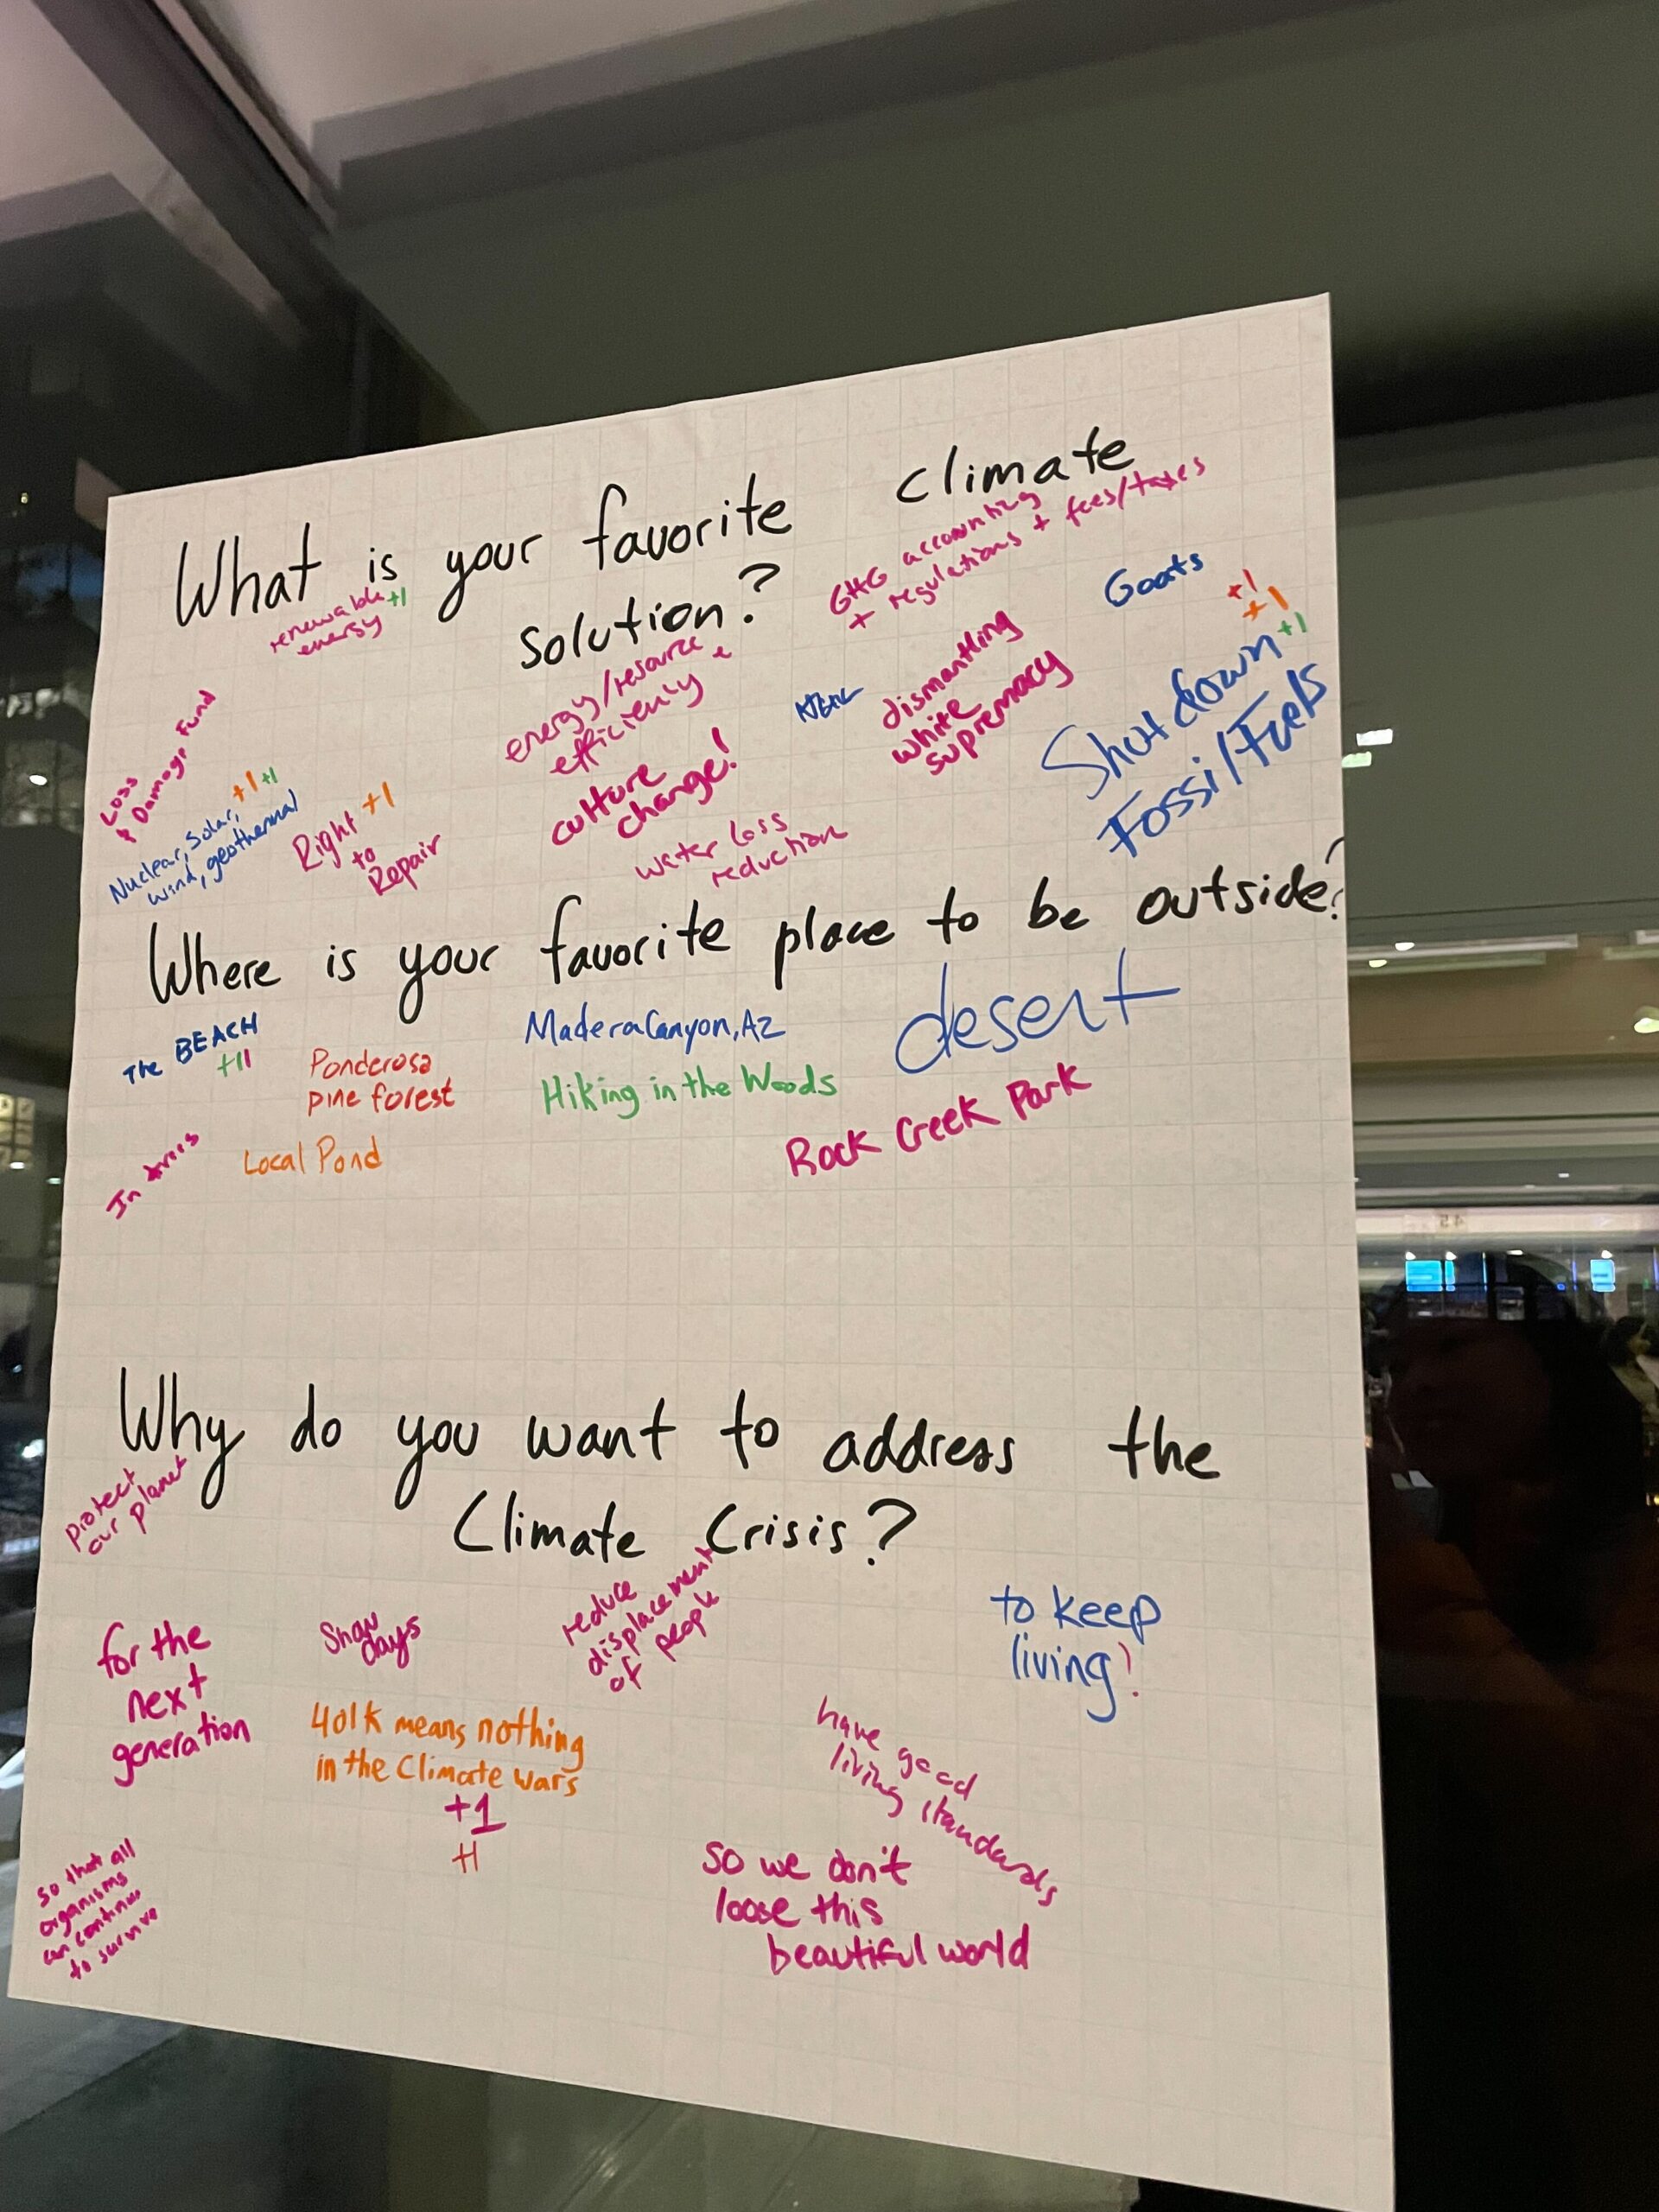 What is your favorite climate
solution?
renewable +1
energy
GHG accounting
+ regulations + fees/taxes
Goats
+1
+1
+1
Shut down
Fossil Fuels
dismantling
white
supremacy
energy/resource
efficiency
culture
change!
water loss
reduction
Loss
& Damage Fund
Nuclear, Solar, +1 +1
wind, geothermal
Right +1
to
Repair
Where is your favorite place to be outside?
The BEACH
+11
Ponderosa
pine forest
Madera Canyon, AZ
Hiking in the Woods
desert
Rock Creek Park
In
Local Pond
Why do you want to address the
Climate Crisis?
protect
our planet
for the
next
generation
Snow
days
reduce
displacement
of people
to keep
living!
401k means nothing
in the Climate wars
+1
+1
have good
living standards
So we don't
loose this
beautiful world
so that all
organisms
can continue
to survive